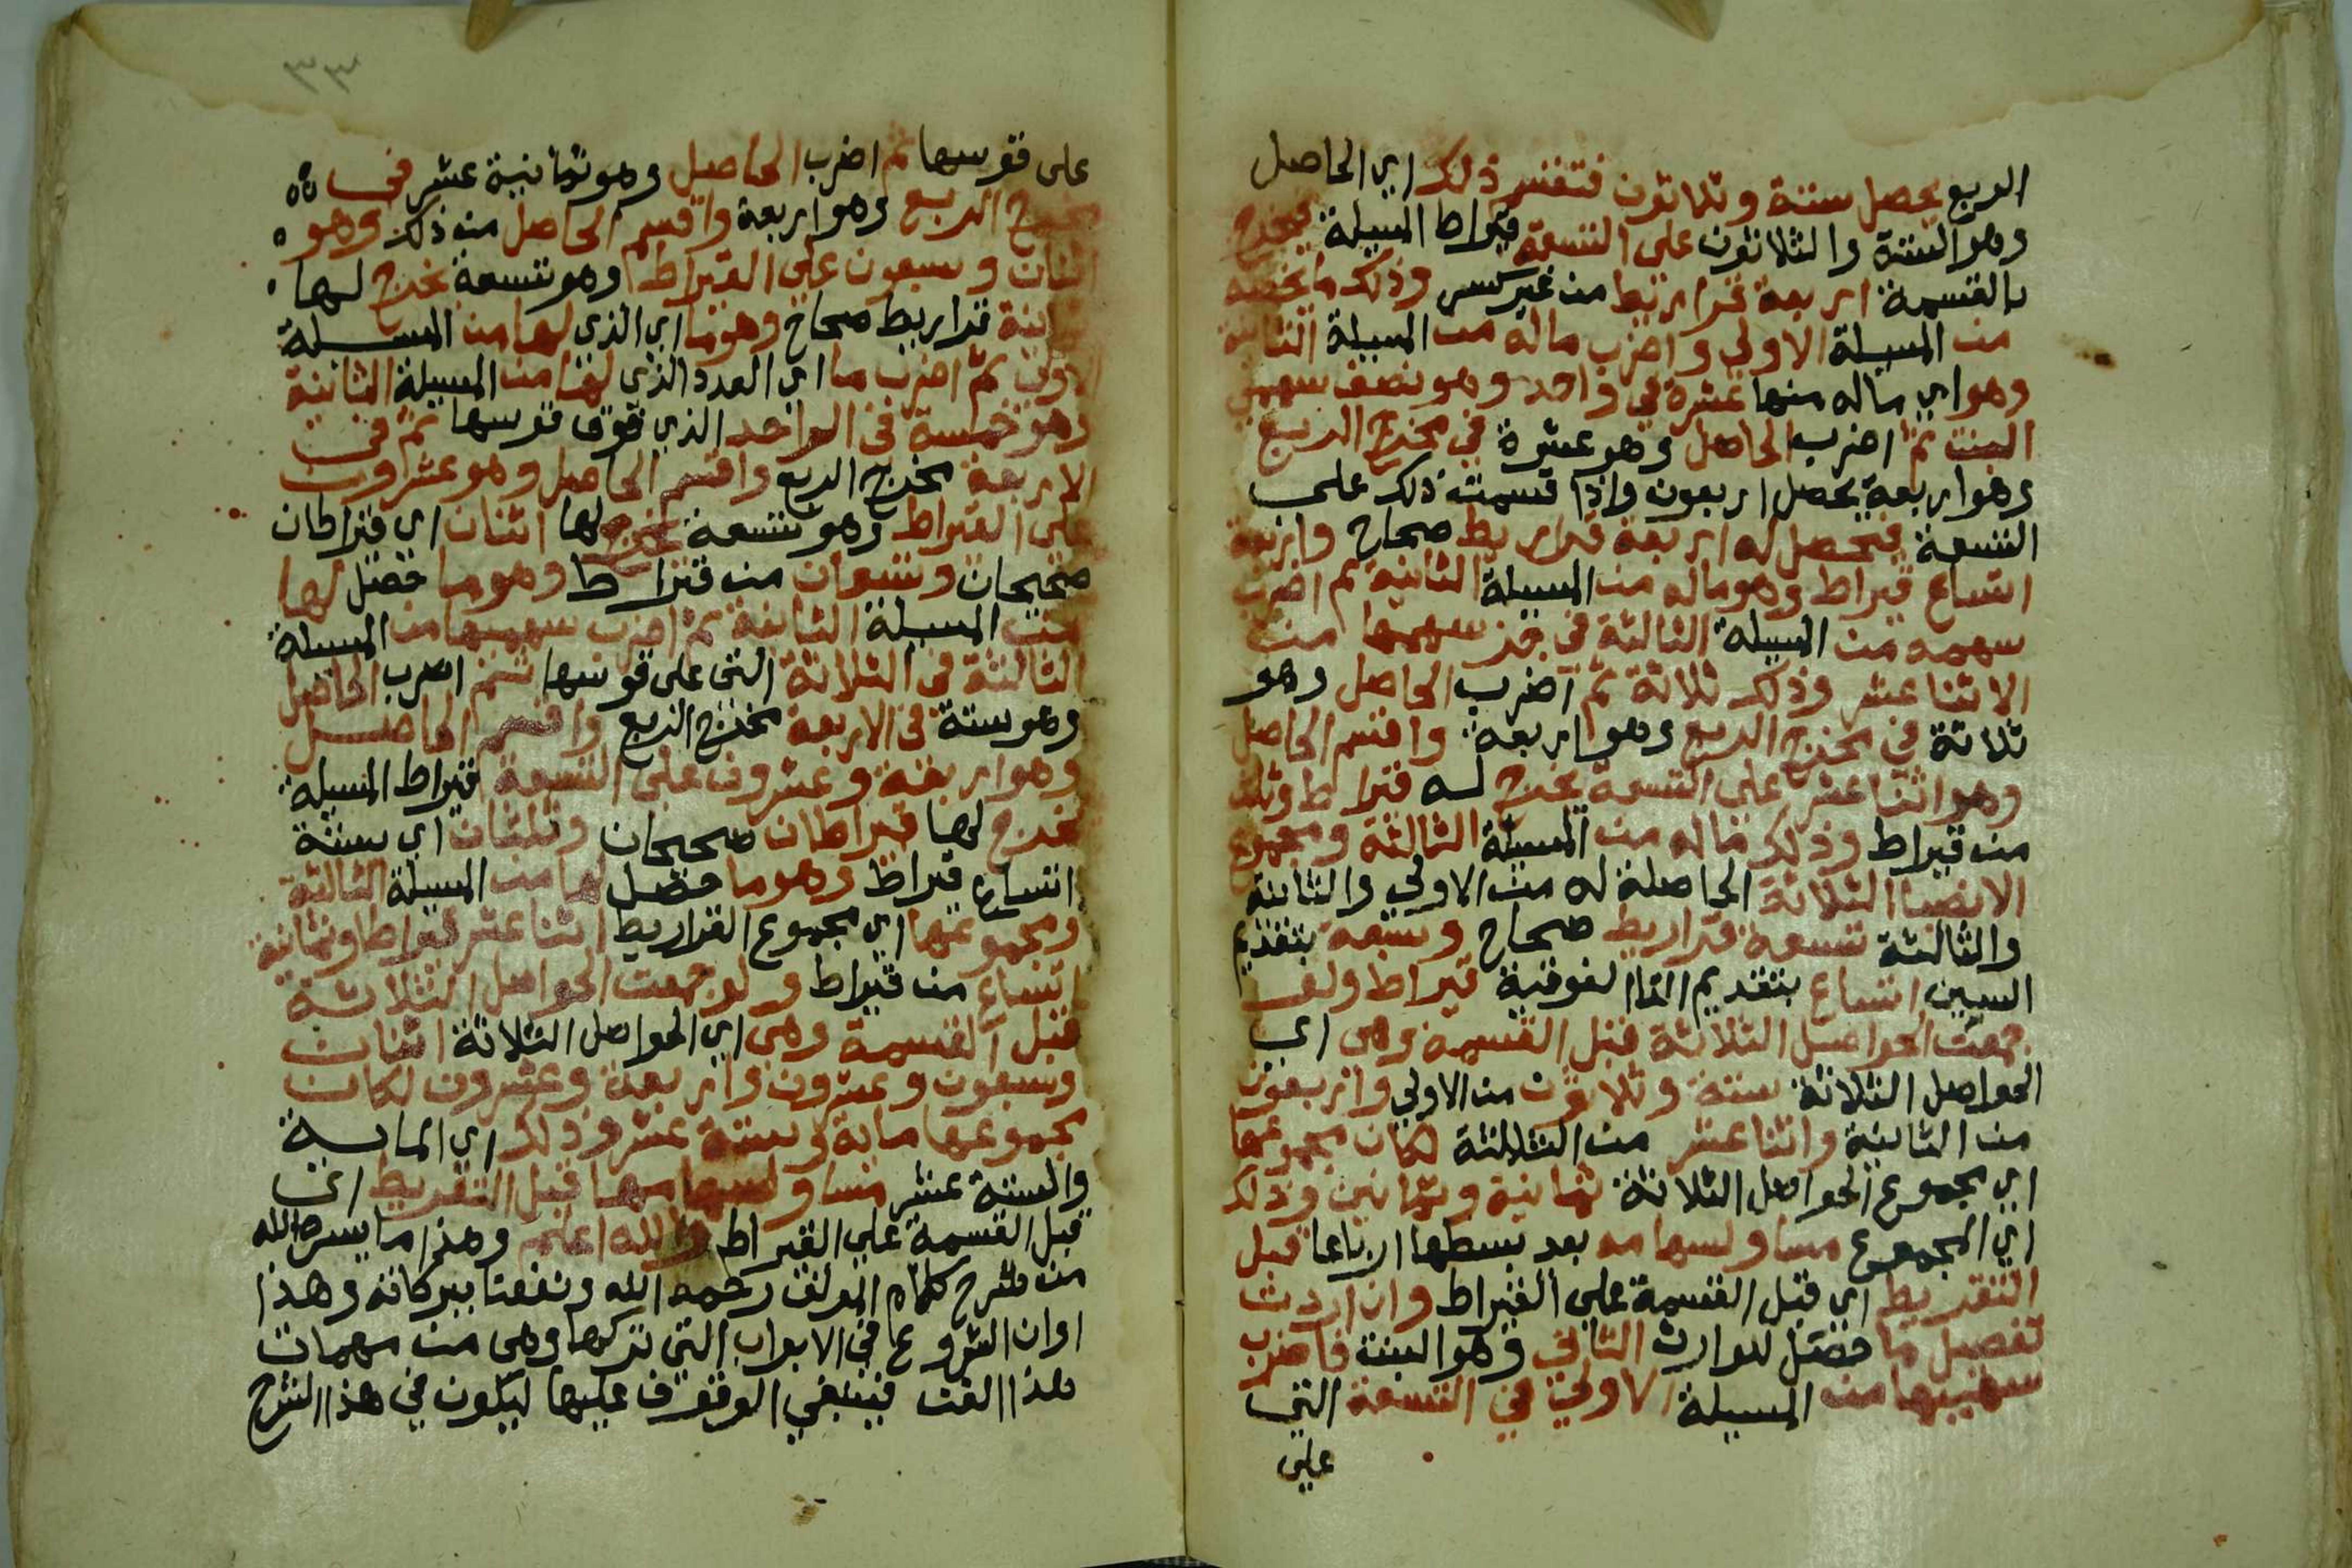 الربع يحصل ستة وثلاثون فتقسم ذلك اي الحاصل
وهو الستة والثلاثون على التسعة قيراط المسيلة يخرج
بالقسمة اربعة قراريط من غير كسر وذلك ما يخصه
من المسيلة الاولى واضرب ماله من المسيلة الثانية
وهو اي ماله منها عشرة في واحد وهو نصف سهمي
البنت ثم اضرب الحاصل وهو عشرة في مخرج الربع
وهو اربعة يحصل اربعون واذا قسمت ذلك على
التسعة فيحصل له اربعة قراريط صحاح واربعة
اتساع قيراط وهو ماله من المسيلة الثانية ثم اضرب
سهمه من المسيلة الثالثة في جز سهمها من
الاثنا عشر وذلك ثلاثة ثم اضرب الحاصل وهو
ثلاثة في مخرج الربع وهو اربعة واقسم الحاصل
وهو اثنا عشر على التسعة يخرج له قيراط وثلث
من قيراط وذلك ماله من المسيلة الثالثة ومجموع
الانصبا الثلاثة الحاصلة له من الاولى والثانية
والثالثة تسعة قراريط صحاح وسبعة بتقديم
السين اتساع بتقديم التا الفوقية قيراط ولو
جمعت الحواصل الثلاثة قبل القسمة وهي اي
الحواصل الثلاثة ستة وثلاثون من الاولي واربعون
من الثانية واثنا عشر من الثالثة لكان مجموعها
اي مجموع الحواصل الثلاثة ثمانية وثمانين وذلك
اي المجموع مساو لسهامه بعد بسطها ارباعا قبل
التقريط اي قبل القسمة على القيراط وان اردت
تفصيل ما حصل للوارث الثاني وهو البنت فاضرب
سهميها من المسيلة الاولى في التسعة التي
على
٣٣
على قوسها ثم اضرب الحاصل وهو ثمانية عشر في
مخرج الربع وهو اربعة واقسم الحاصل من ذلك وهو
اثنان وسبعون على القيراط وهو تسعة يخرج لها
ثمانية قراريط صحاح وهو ما اي الذي لها من المسيلة
الاولى ثم اضرب ما اي العدد الذي لها من المسيلة الثانية
وهو خمسة في الواحد الذي فوق قوسها ثم في
الاربعة مخرج الربع واقسم الحاصل وهو عشرون
على القيراط وهو تسعة يخرج لها اثنان اي قيراطان
صحيحان وتسعان من قيراط وهو ما حصل لها
من المسيلة الثانية ثم اضرب سهميها من المسيلة
الثالثة في الثلاثة التي على قوسها ثم اضرب الحاصل
وهو ستة في الاربعة مخرج الربع واقسم الحاصل
وهو اربعة وعشرون على التسعة قيراط المسيلة
يخرج لها قيراطان صحيحان وثلثان اي ستة
اتساع قيراط وهو ما حصل لها من المسيلة الثالثة
ومجموعها اي مجموع القراريط اثنا عشر قيراطا وثمانية
اتساع من قيراط ولو جمعت الحواصل الثلاثة
قبل القسمة وهي اي الحواصل الثلاثة اثنان
وسبعون وعشرون واربعة وعشرون لكان
مجموعها ماية وستة عشر وذلك اي الماية
والستة عشر مساو لسهامها قبل التقريط اي
قبل القسمة على القيراط والله اعلم وهذا ما يسره الله
من شرح كلام المولف رحمه الله ونفعنا ببركاته وهذا
اوان الشروع في الابواب التي تركها وهي من مهمات
هذا الفن فينبغي الوقوف عليها ليكون في هذا الشرح